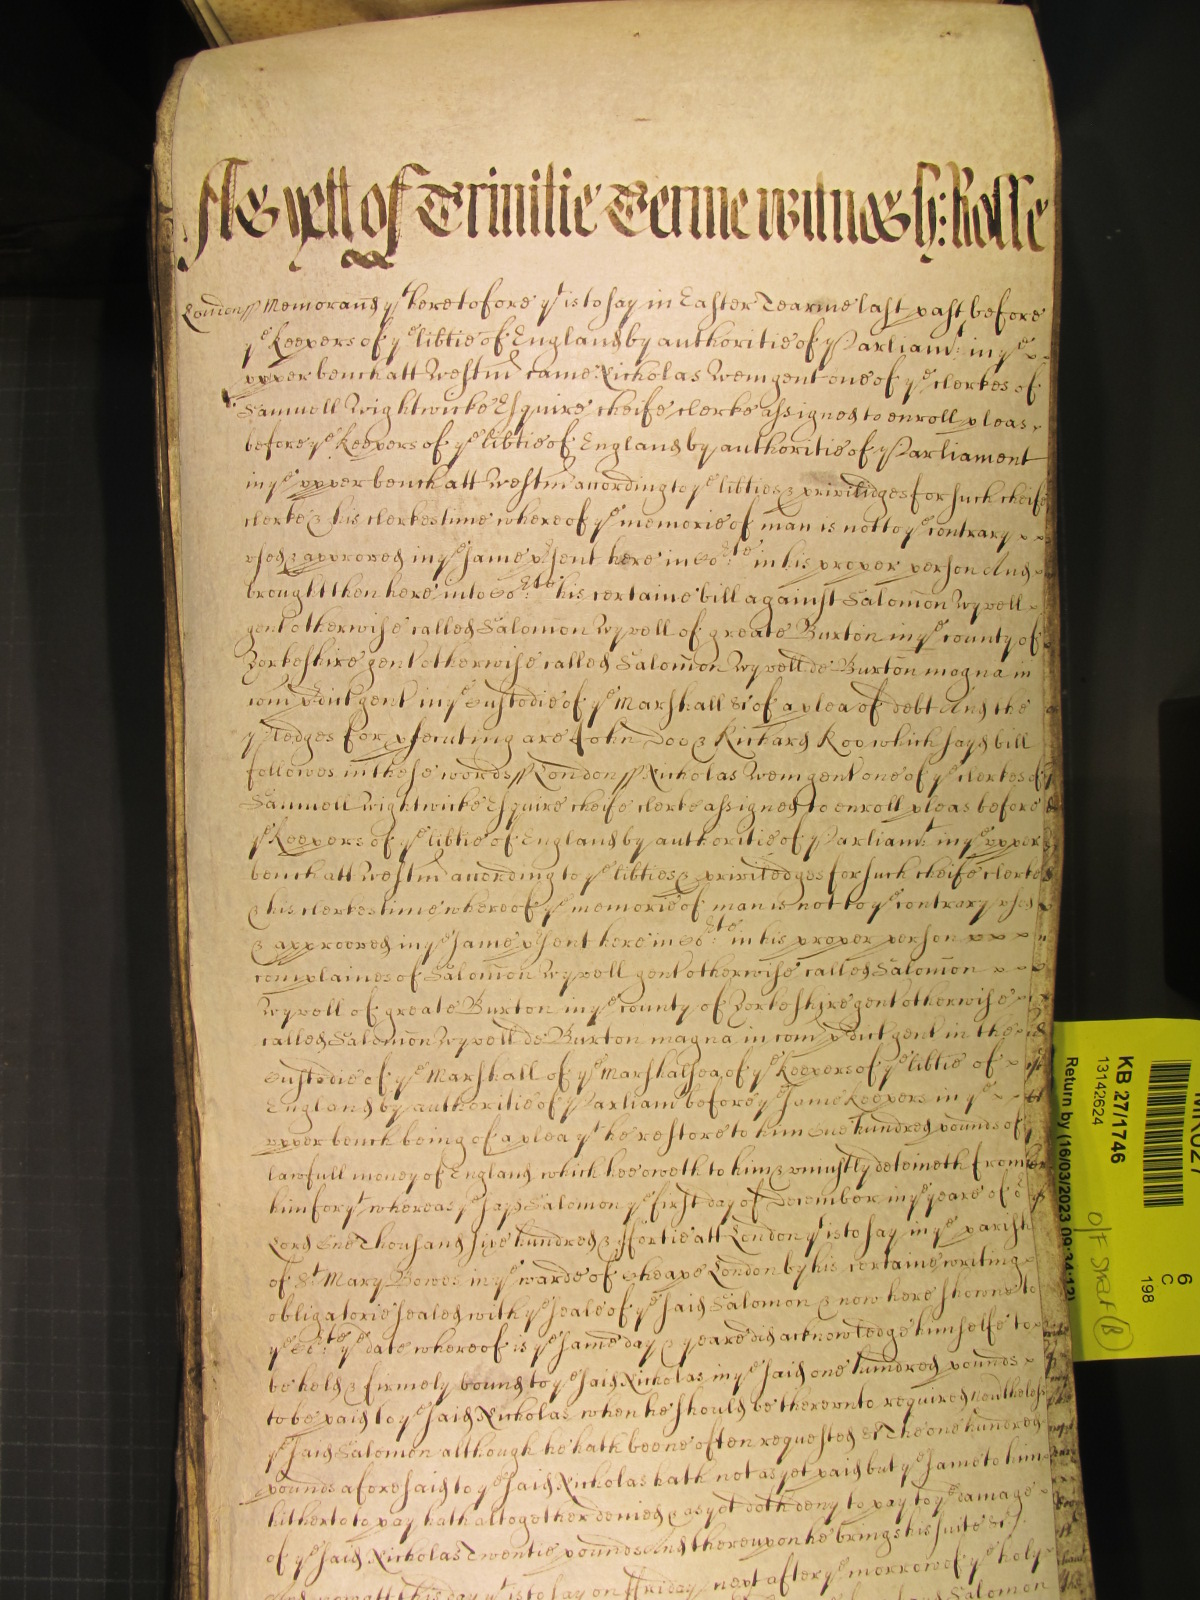 As yett of Trinitie Terme witnes H: Rolle
London ss Memorand yt heretofore yt is to say in Easter Tearme last past before
ye Keepers of ye libtie of England by authoritie of Parliamt: in ye
upper bench att Westmr came Nicholas Wem gent one of ye clerkes of
Samuell Wightwicke Esquire cheife clerke assigned to enroll pleas
before ye Keepers of ye libtie of England by authoritie of Parliament
in ye upper bench att Westmr according to ye libties & priviledges for such cheife
clerke & his clerkes time whereof ye memorie of man is not to ye contrary
used & approved in ye same psent here in Co:rte in his proper person And
brought then here into Co:rte his certaine bill against Salomon Wyvell
gent otherwise called Salomon Wyvell of greate Burton in ye county of
Yorkeshire gent otherwise called Salomon Wyvell de Burton magna in
com pdict gent in ye Custodie of ye Marshall &c of a plea of debt And the
pledges for psecuting are John Doo & Richard Roo which sayd bill
followes in these words ss London ss Nicholas Wem gent one of ye clerkes of
Samuell Wightwicke Esquire cheife clerke assigned to enroll pleas before
ye Keepers of ye libtie of England by authoritie of Parliamt: in ye upper
bench att Westmr according to ye libties & priviledges for such cheife clerke
& his clerkes time whereof ye memorie of man is not to ye contrary used
& approoved in ye same psent here in Co:rte in his proper person
complaines of Salomon Wyvell gent otherwise called Salomon
Wyvell of greate Burton in ye county of Yorkeshire gent otherwise
called Salomon Wyvell de Burton magna in com pdict gent in the
Custodie of ye Marshall of ye Marshalsea of ye Keepers of ye libtie of
England by authoritie of Parliamt before ye same Keepers in ye
upper bench being of a plea yt he restore to him One hundred pounds of
lawfull money of England which hee oweth to him & uniustly detaineth from
him for yt whereas ye sayd Salomon ye first day of December in ye yeare of or
Lord One Thousand Six hundred & fortie att London yt is to say in ye parish
of St Mary Bowes in ye warde of Cheape London by his certaine writing
obligatorie sealed with ye seale of ye said Salomon & now here showne to
ye Co:rte ye date whereof is ye same day & yeare did acknowledge himselfe to
be held & firmely bound to ye said Nicholas in ye said one hundred pounds
to be paid to ye said Nicholas when he should be thereunto required neutheless
ye said Salomon although he hath beene often requested &c The one hundred
pounds aforesaid to ye said Nicholas hath not as yet paid but ye same to him
hitherto to pay hath altogether denied & as yet doth deny to pay to ye damage
of ye said Nicholas Twentie pounds And thereupon he brings his suite &c
And now att this day yt is to say on Friday next after ye morrow of ye holy
Salomon
KB 27/1746
13142624
Return by (16/03/2023 09:34:12)
6
C
198